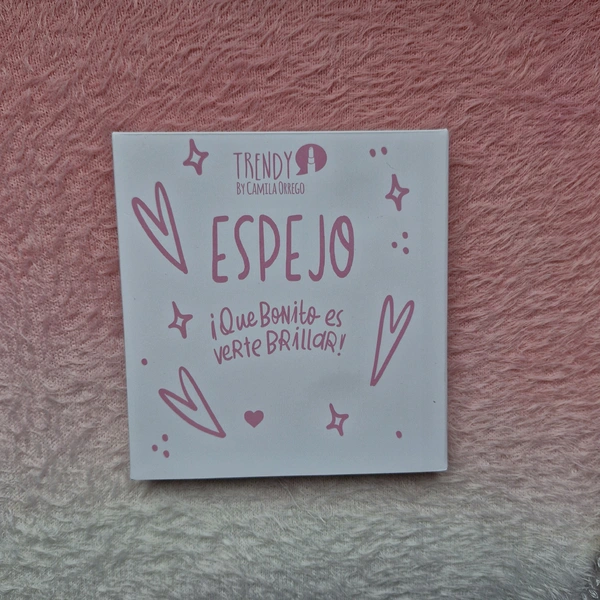 TRENDY
BY CAMILA ORREGO
ESPEJO
¡QUE BONITO es
verte BRillAR!